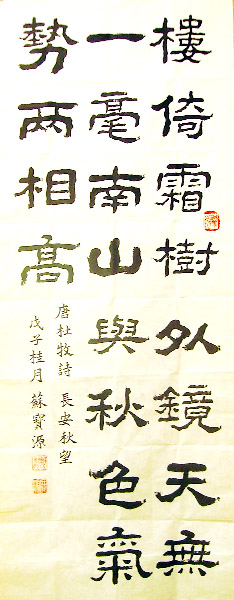 樓倚霜樹外鏡天無
一毫南山與秋色氣
勢两相高
唐杜牧詩 長安秋望
戊子桂月 蘇寶源